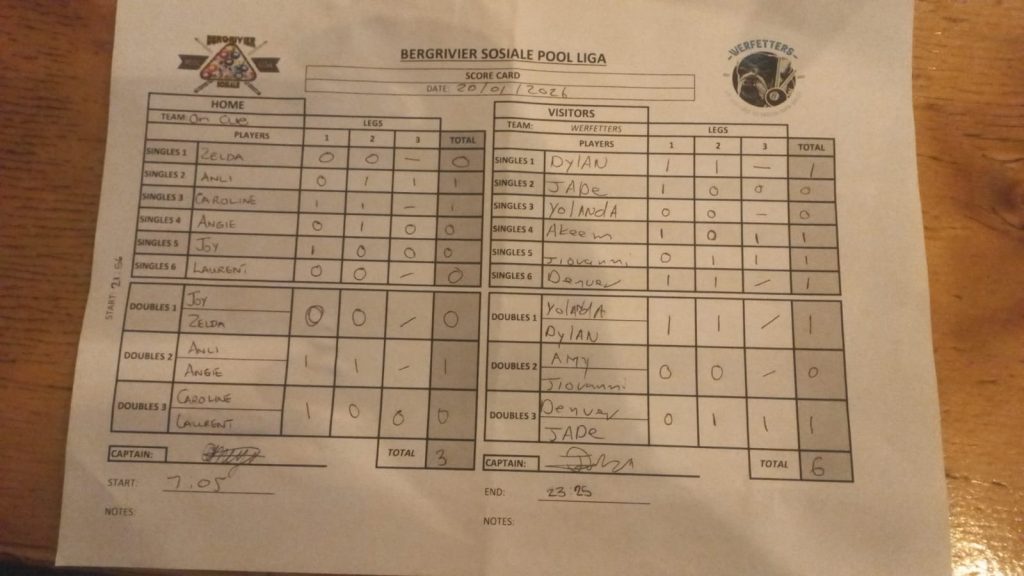 BERGRIVIER
SOSIALE
BERGRIVIER SOSIALE POOL LIGA
WERFETTERS
SCORE CARD
DATE: 20/01/2026
HOME
TEAM: On Cue LEGS
PLAYERS 1 2 3 TOTAL
SINGLES 1 ZELDA 0 0 – 0
SINGLES 2 ANLI 0 1 1 1
SINGLES 3 CAROLINE 1 1 - 1
SINGLES 4 ANGIE 0 1 0 0
SINGLES 5 JOY 1 0 0 0
SINGLES 6 LAURENT 0 0 - 0
START: 21:56
DOUBLES 1 JOY
ZELDA 0 0 / 0
DOUBLES 2 ANLI
ANGIE 1 1 - 1
DOUBLES 3 CAROLINE
LAURENT 1 0 0 0
CAPTAIN: TOTAL 3
START: 7.05
NOTES:
VISITORS
TEAM: WERFETTERS LEGS
PLAYERS 1 2 3 TOTAL
SINGLES 1 DylAN 1 1 – 1
SINGLES 2 JADe 1 0 0 0
SINGLES 3 YolANdA 0 0 - 0
SINGLES 4 Akeem 1 0 1 1
SINGLES 5 Jiovanni 0 1 1 1
SINGLES 6 Denver 1 1 - 1
DOUBLES 1 YolANdA
DylAN 1 1 / 1
DOUBLES 2 AMY
Jiovanni 0 0 - 0
DOUBLES 3 Denver
JADe 0 1 1 1
CAPTAIN: TOTAL 6
END: 23 25
NOTES: